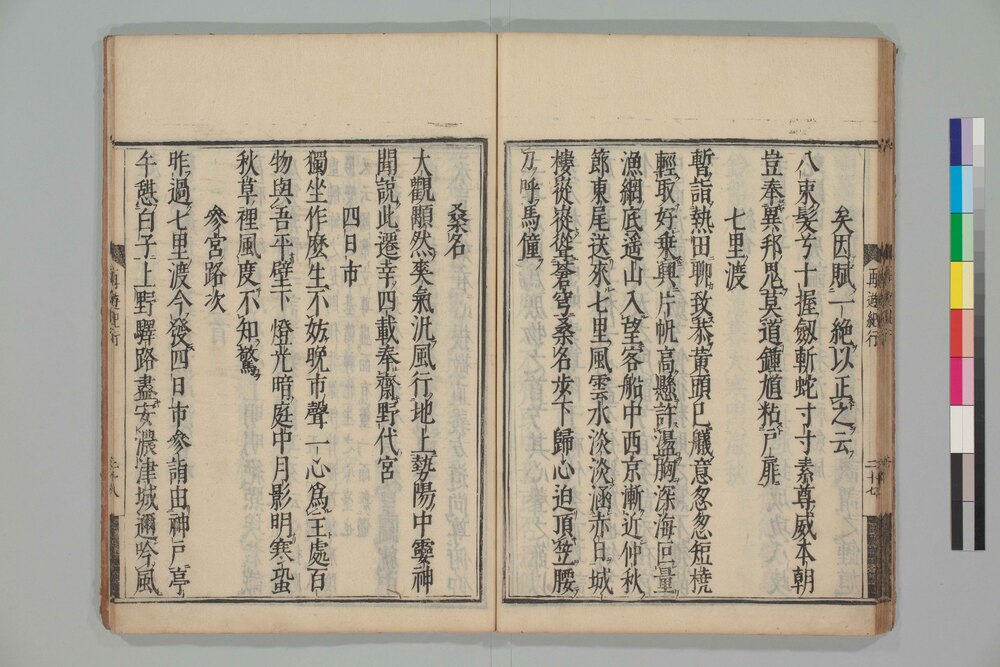 矣因賦一絶以正之云
八束髮兮十握劔斬蛇寸寸素尊威本朝
豈奉異邦鬼莫道鍾馗粘戸扉
七里渡
暫詣熱田聊致恭黄頭已艤意怱怱短橈
輕取好乘輿片帆高懸許盪胸深海回量
漁網底遥山入望客船中西京漸近仲秋
節東尾送來七里風雲水淡淡涵赤日城
樓従従聳蒼穹桑名歩下歸心迫頂笠腰
刀呼馬僮
再遊紀行
二十七
桑名
大觀顯然爽氣汎風行地上勢陽中靈神
聞説此遷幸四載奉齋野代宮
四日市
獨坐作麽生不妨晩市聲一心為王處百
物與吾平壁下燈光暗庭中月影明寒蛩
秋草裡風度不知驚
參宮路次
昨過七里渡今發四日市參詣由神戸亭
午憩白子上野驛路盡安濃津城邇吟風